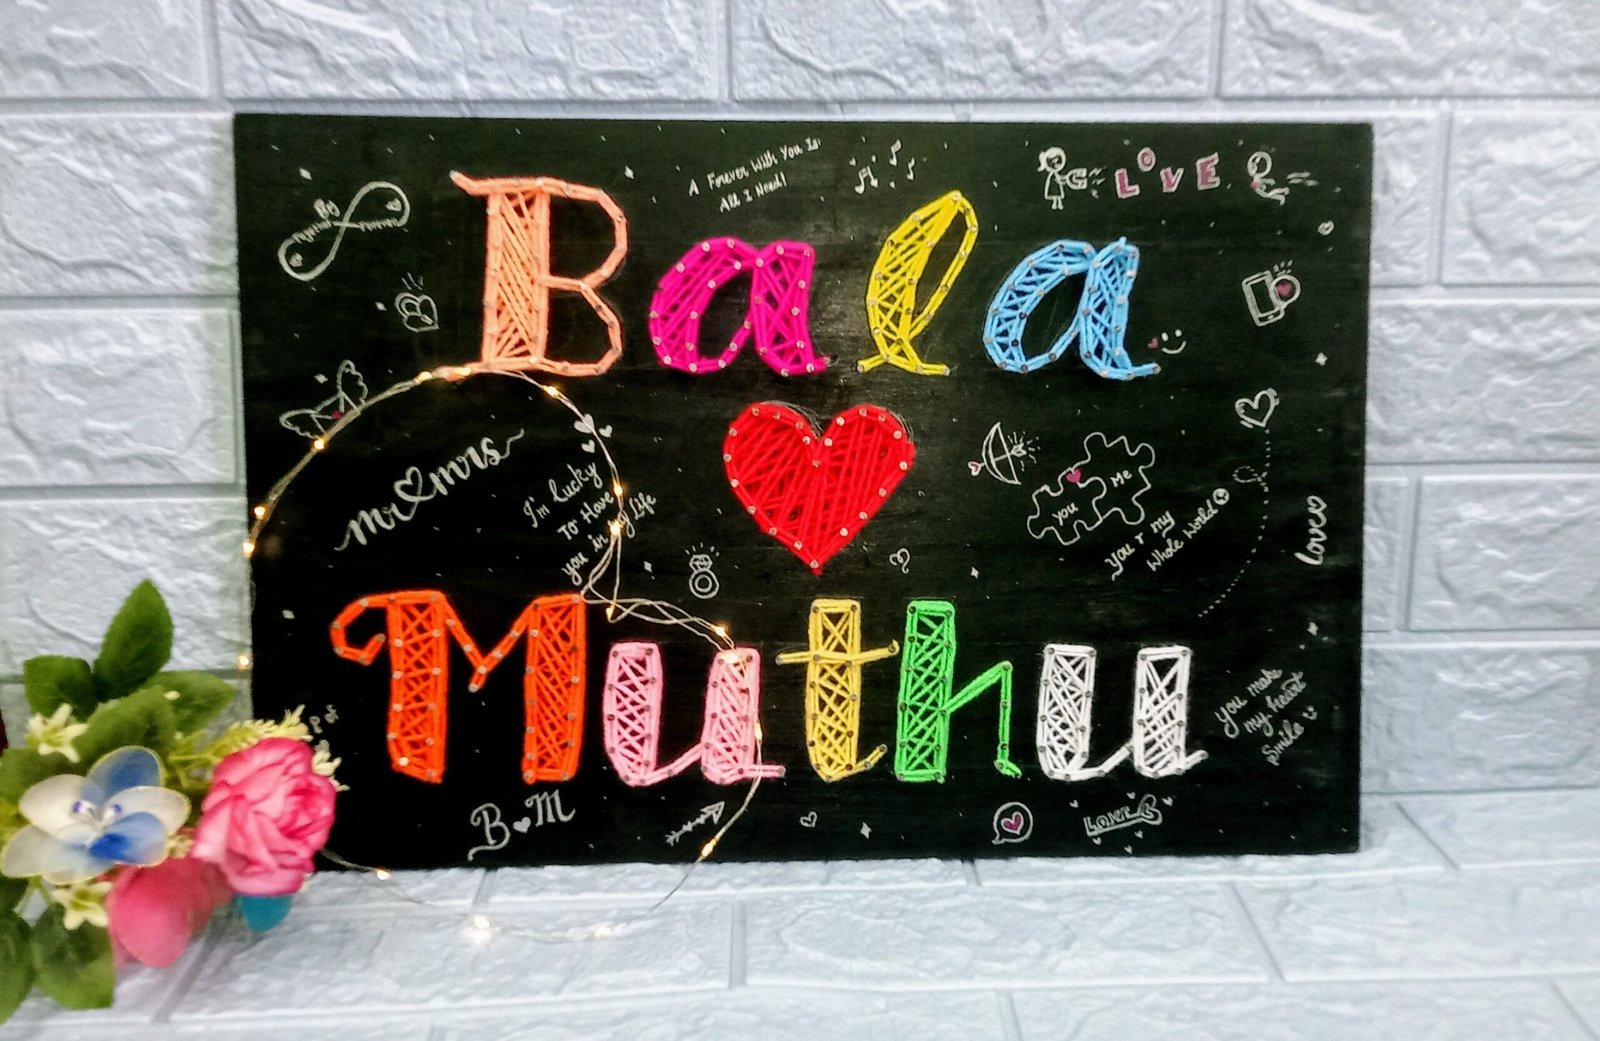 A Forever With You Is
All I Need!
LOVE
Together
Forever
Bala
mr mrs
I'm lucky
To Have
you in my life
you
Me
you r my
Whole World
Love
Muthu
you make
my heart
smile
B M
LOVE